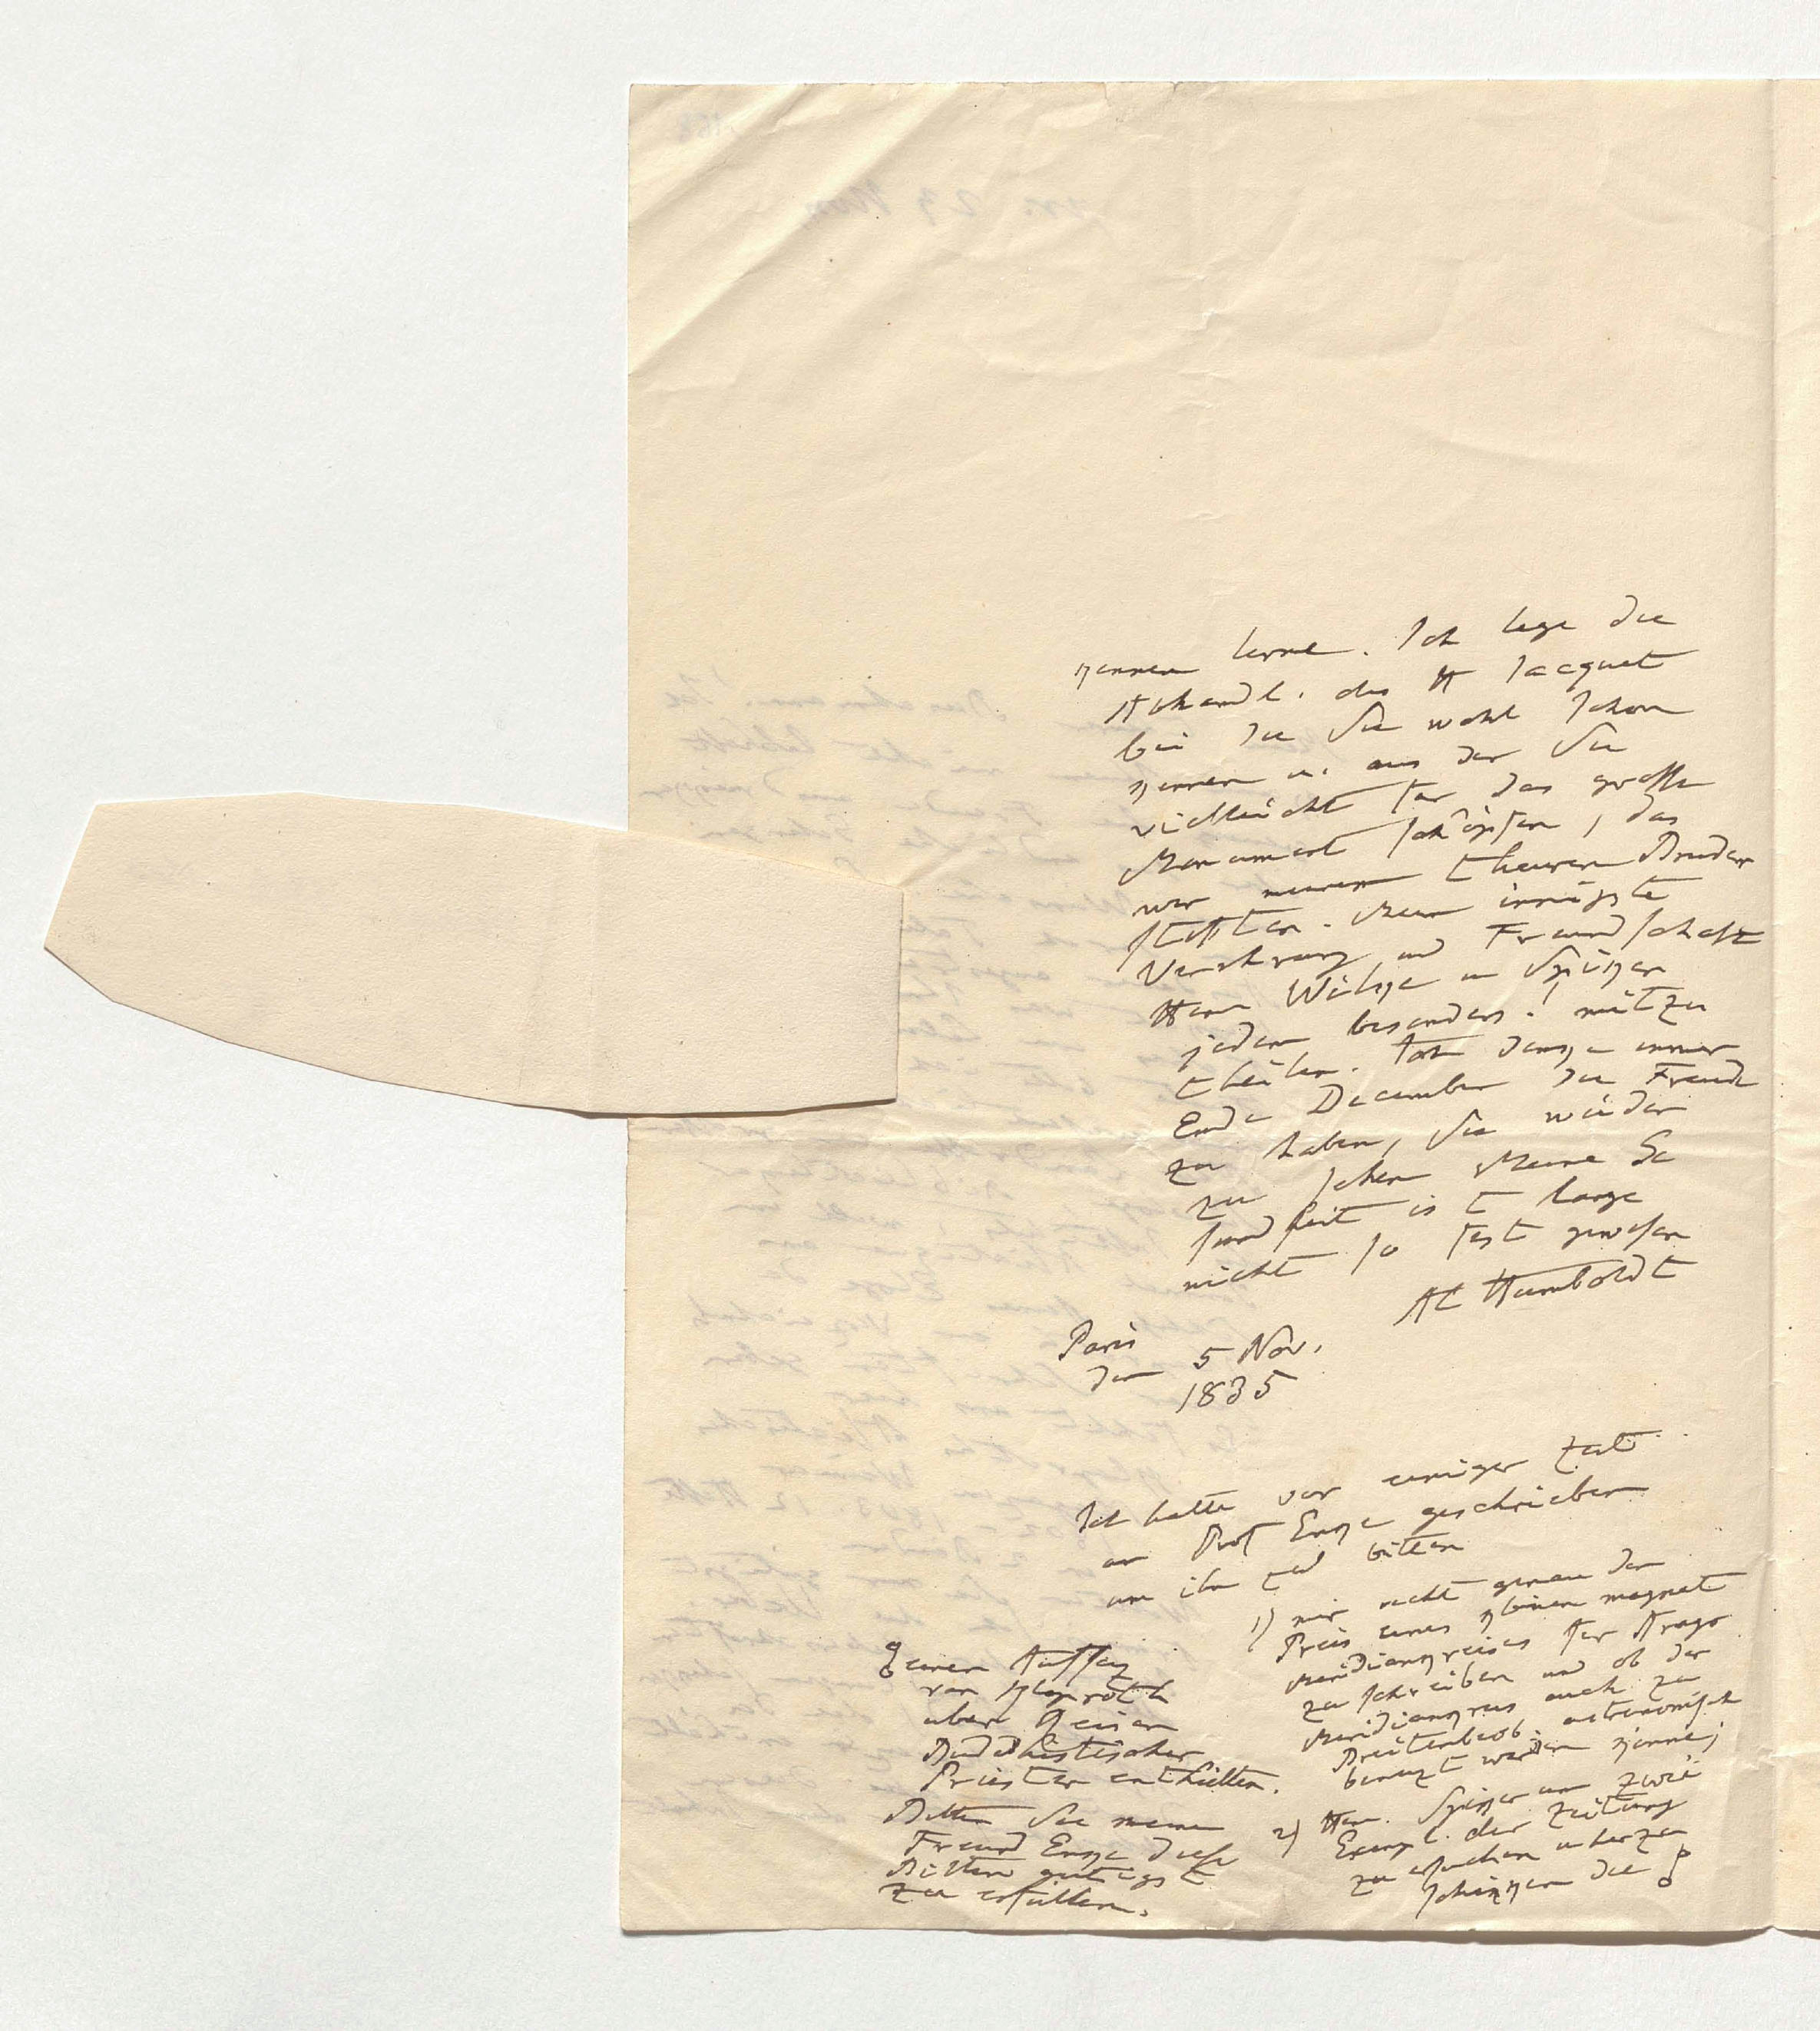 kennen lerne. Ich lege die
Abhandl. des H Jacquet
bei die Sie wohl schon
kennen u. aus der Sie
vielleicht für das grosse
Monument schöpfen, das
wir meinem theuren Bruder
stifften. Meine innigste
Verehrung und Freundschaft
Herrn Wilken u Spiker
jedem besonders! mitzu
theilen. Ich denke immer
Ende December die Freude
zu haben, Sie wieder
zu sehen. Meine Ge
sundheit ist lange
nicht so fest gewesen
Al Humboldt
Paris
den 5 Nov.
1835
Ich hatte vor einiger Zeit
an Prof Enke geschrieben
um ihn zu bitten
1) mir recht genau den
Preis eines kleinen magnet
Meridiankreises für Arago
zu schreiben und ob der
Meridiankreis auch zu
Breitenbeob. astronomisch
benuzt werden könne;
2) Herr. Spiker um zwei
Exempl. der Zeitung
zu ersuchen u herzu
schikken die
einen Aufsaz
von Klaproth
über Reisen
Buddhistischer
Priester enthielten.
Bitten Sie meinen
Freund Enke diese
Bitten gütigst
zu erfüllen.